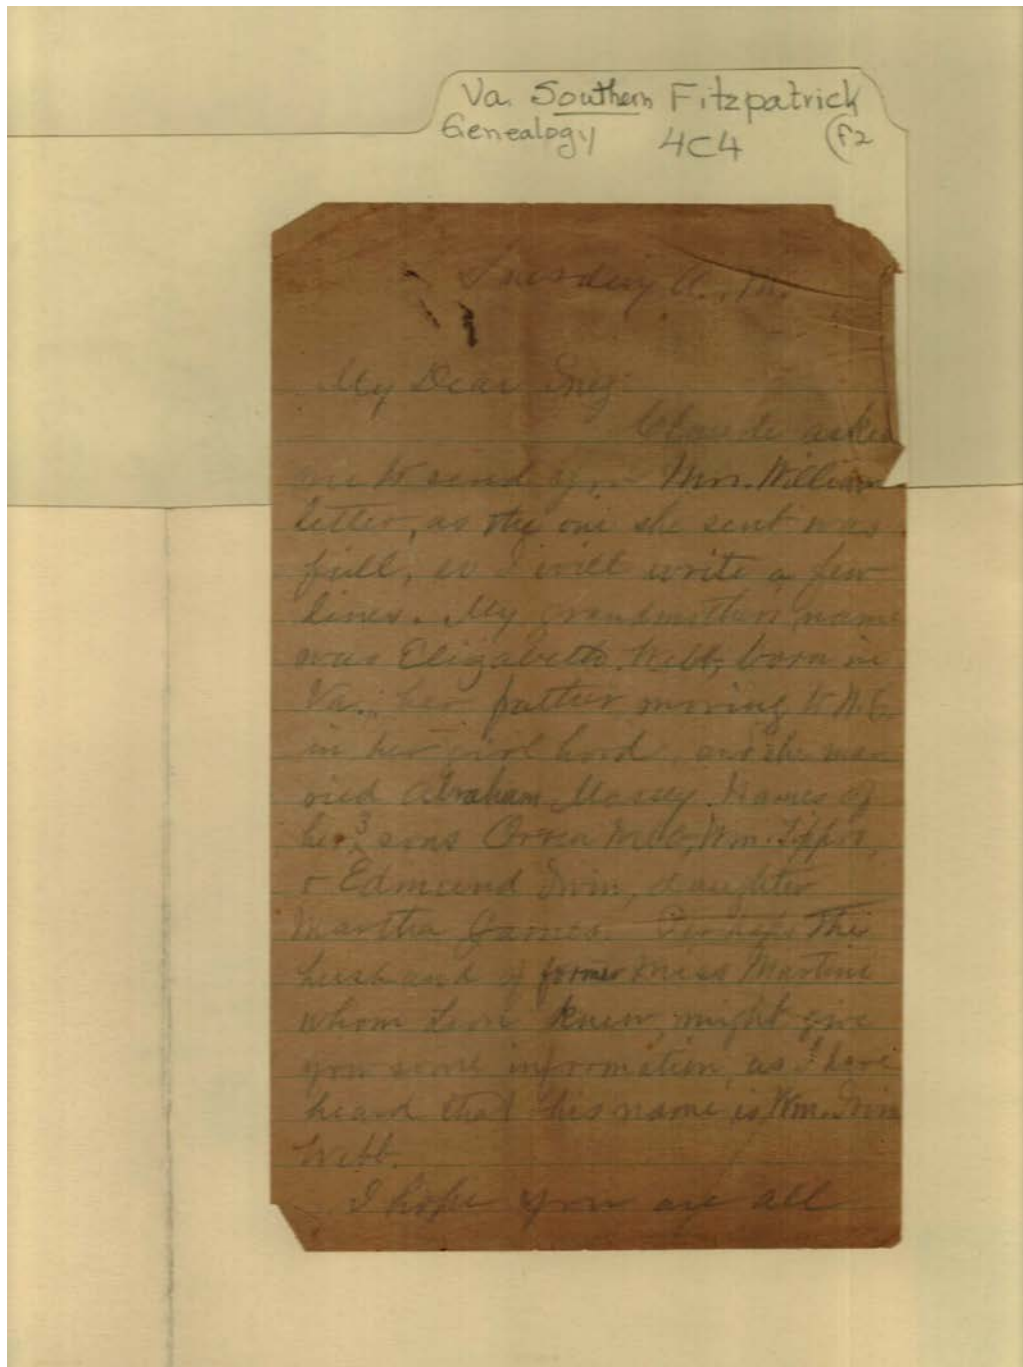 Va. Southern Fitzpatrick
Genealogy 4C4 F2
Tuesday A.M.
My Dear Inez:
Claude asked
me to send you Mrs. William
letter, as the one she sent was
full, so I will write a few
lines. My Grandmother's name
was Elizabeth Webb, born in
Va., her father moving to N.C.
in her girl hood, and she mar
ried Abraham Massey. Names of
her 3 sons Wm.
& Edmund Irvin, daughter
Martha James. Perhaps The
husband of former Miss Martine
whom knew, might give
you some information, as I have
heard that his name is Wm. Irvin
Webb.
I hope you are all